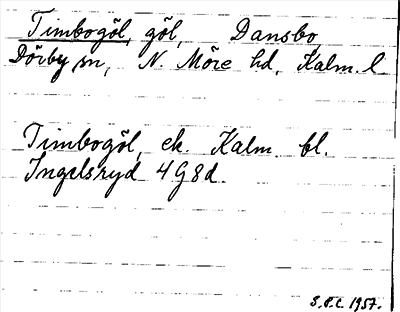 Timbogöl, göl, Dansbo,
Dörby sn, N. Möre hd, Kalm. l.
Timbogöl, ek. Kalm. bl.
Ingelsryd 4G8d.
S.E.C. 1957.